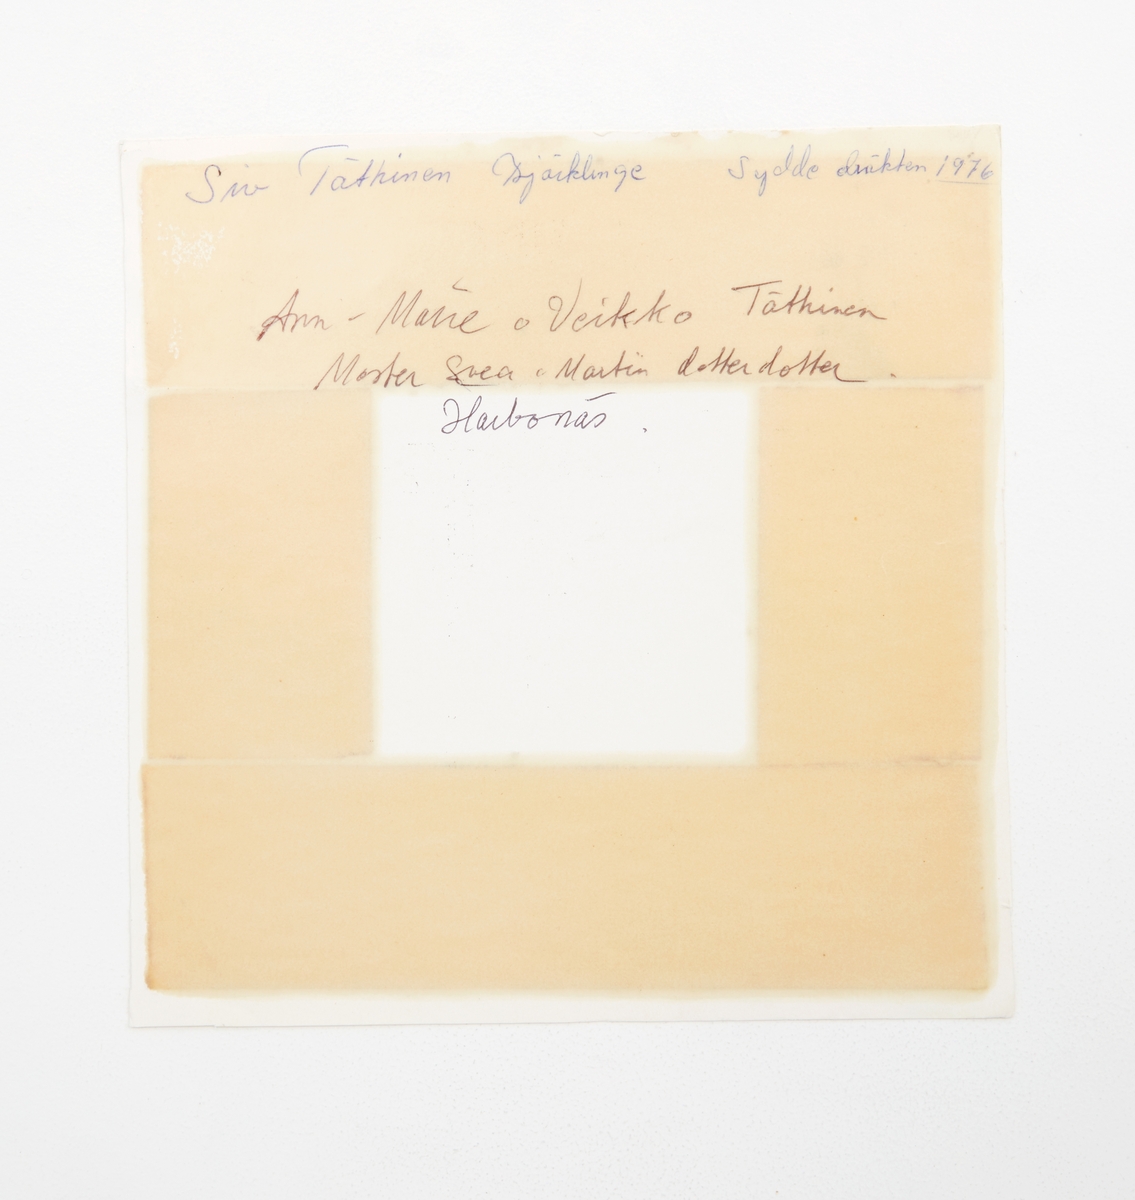 Siv Täthinen Bjärklinge Sydde dräkten 1976
Ann - Marie o Veikko Täthinen
Moster Svea o Martin dotterdotter.
Harbonäs.